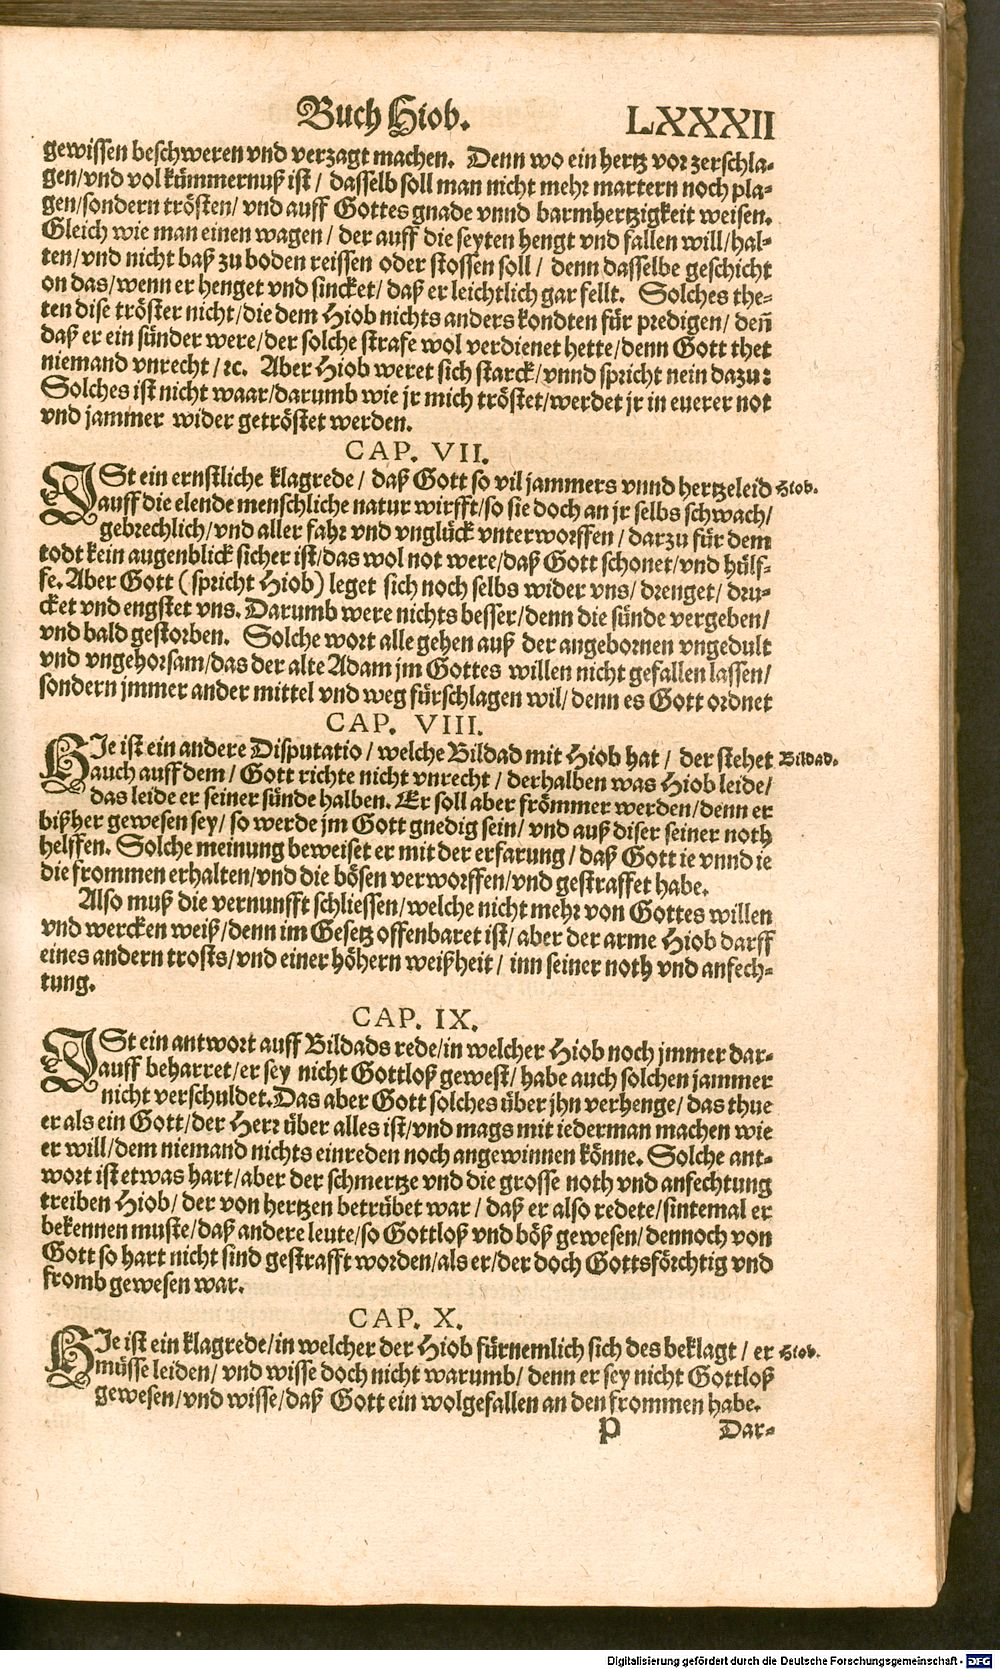 Buch Hiob. LXXXII
gewissen beschweren vnd verzagt machen. Denn wo ein hertz vor zerschla-
gen/vnd vol kümmernuß ist / dasselb soll man nicht mehr martern noch pla-
gen/sondern trösten/ vnd auff Gottes gnade vnnd barmhertzigkeit weisen.
Gleich wie man einen wagen / der auff die seyten hengt vnd fallen will/hal-
ten/vnd nicht baß zu boden reissen oder stossen soll / denn dasselbe geschicht
on das/wenn er henget vnd sincket/ daß er leichtlich gar fellt. Solches the-
ten dise tröster nicht/die dem Hiob nichts anders kondten für predigen/ deñ
daß er ein sünder were/der solche strafe wol verdienet hette/denn Gott thet
niemand vnrecht /ꝛc. Aber Hiob weret sich starck/vnnd spricht nein dazu:
Solches ist nicht waar/darumb wie jr mich tröstet/werdet jr in euerer not
vnd jammer wider getröstet werden.
CAP. VII.
ISt ein ernstliche klagrede / daß Gott so vil jammers vnnd hertzeleid Hiob.
auff die elende menschliche natur wirfft/so sie doch an jr selbs schwach/
gebrechlich/vnd aller fahr vnd vnglück vnterworffen / darzu für dem
todt kein augenblick sicher ist/das wol not were/daß Gott schonet/vnd hülf-
fe. Aber Gott (spricht Hiob) leget sich noch selbs wider vns/ drenget/ dru-
cket vnd engstet vns. Darumb were nichts besser/denn die sünde vergeben/
vnd bald gestorben. Solche wort alle gehen auß der angebornen vngedult
vnd vngehorsam/das der alte Adam jm Gottes willen nicht gefallen lassen/
sondern jmmer ander mittel vnd weg fürschlagen wil/denn es Gott ordnet
CAP. VIII.
HIe ist ein andere Disputatio / welche Bildad mit Hiob hat / der stehet Bildad.
auch auff dem / Gott richte nicht vnrecht / derhalben was Hiob leide/
das leide er seiner sünde halben. Er soll aber frömmer werden/denn er
bißher gewesen sey/ so werde jm Gott gnedig sein/ vnd auß diser seiner noth
helffen. Solche meinung beweiset er mit der erfarung / daß Gott ie vnnd ie
die frommen erhalten/vnd die bösen verworffen/vnd gestraffet habe.
Also muß die vernunfft schliessen/welche nicht mehr von Gottes willen
vnd wercken weiß/denn im Gesetz offenbaret ist/ aber der arme Hiob darff
eines andern trosts/vnd einer höhern weißheit / inn seiner noth vnd anfech-
tung.
CAP. IX.
ISt ein antwort auff Bildads rede/in welcher Hiob noch jmmer dar-
auff beharret/er sey nicht Gottloß gewest/ habe auch solchen jammer
nicht verschuldet. Das aber Gott solches über jhn verhenge/ das thue
er als ein Gott/der Herr über alles ist/vnd mags mit iederman machen wie
er will/dem niemand nichts einreden noch angewinnen könne. Solche ant-
wort ist etwas hart/aber der schmertze vnd die grosse noth vnd anfechtung
treiben Hiob/ der von hertzen betrübet war / daß er also redete/sintemal er
bekennen muste/daß andere leute/so Gottloß vnd böß gewesen/dennoch von
Gott so hart nicht sind gestrafft worden/als er/der doch Gottsförchtig vnd
fromb gewesen war.
CAP. X.
HIe ist ein klagrede/in welcher der Hiob fürnemlich sich des beklagt / er Hiob.
müsse leiden/ vnd wisse doch nicht warumb/ denn er sey nicht Gottloß
gewesen/vnd wisse/daß Gott ein wolgefallen an den frommen habe.
P Dar-
Digitalisierung gefördert durch die Deutsche Forschungsgemeinschaft - DFG